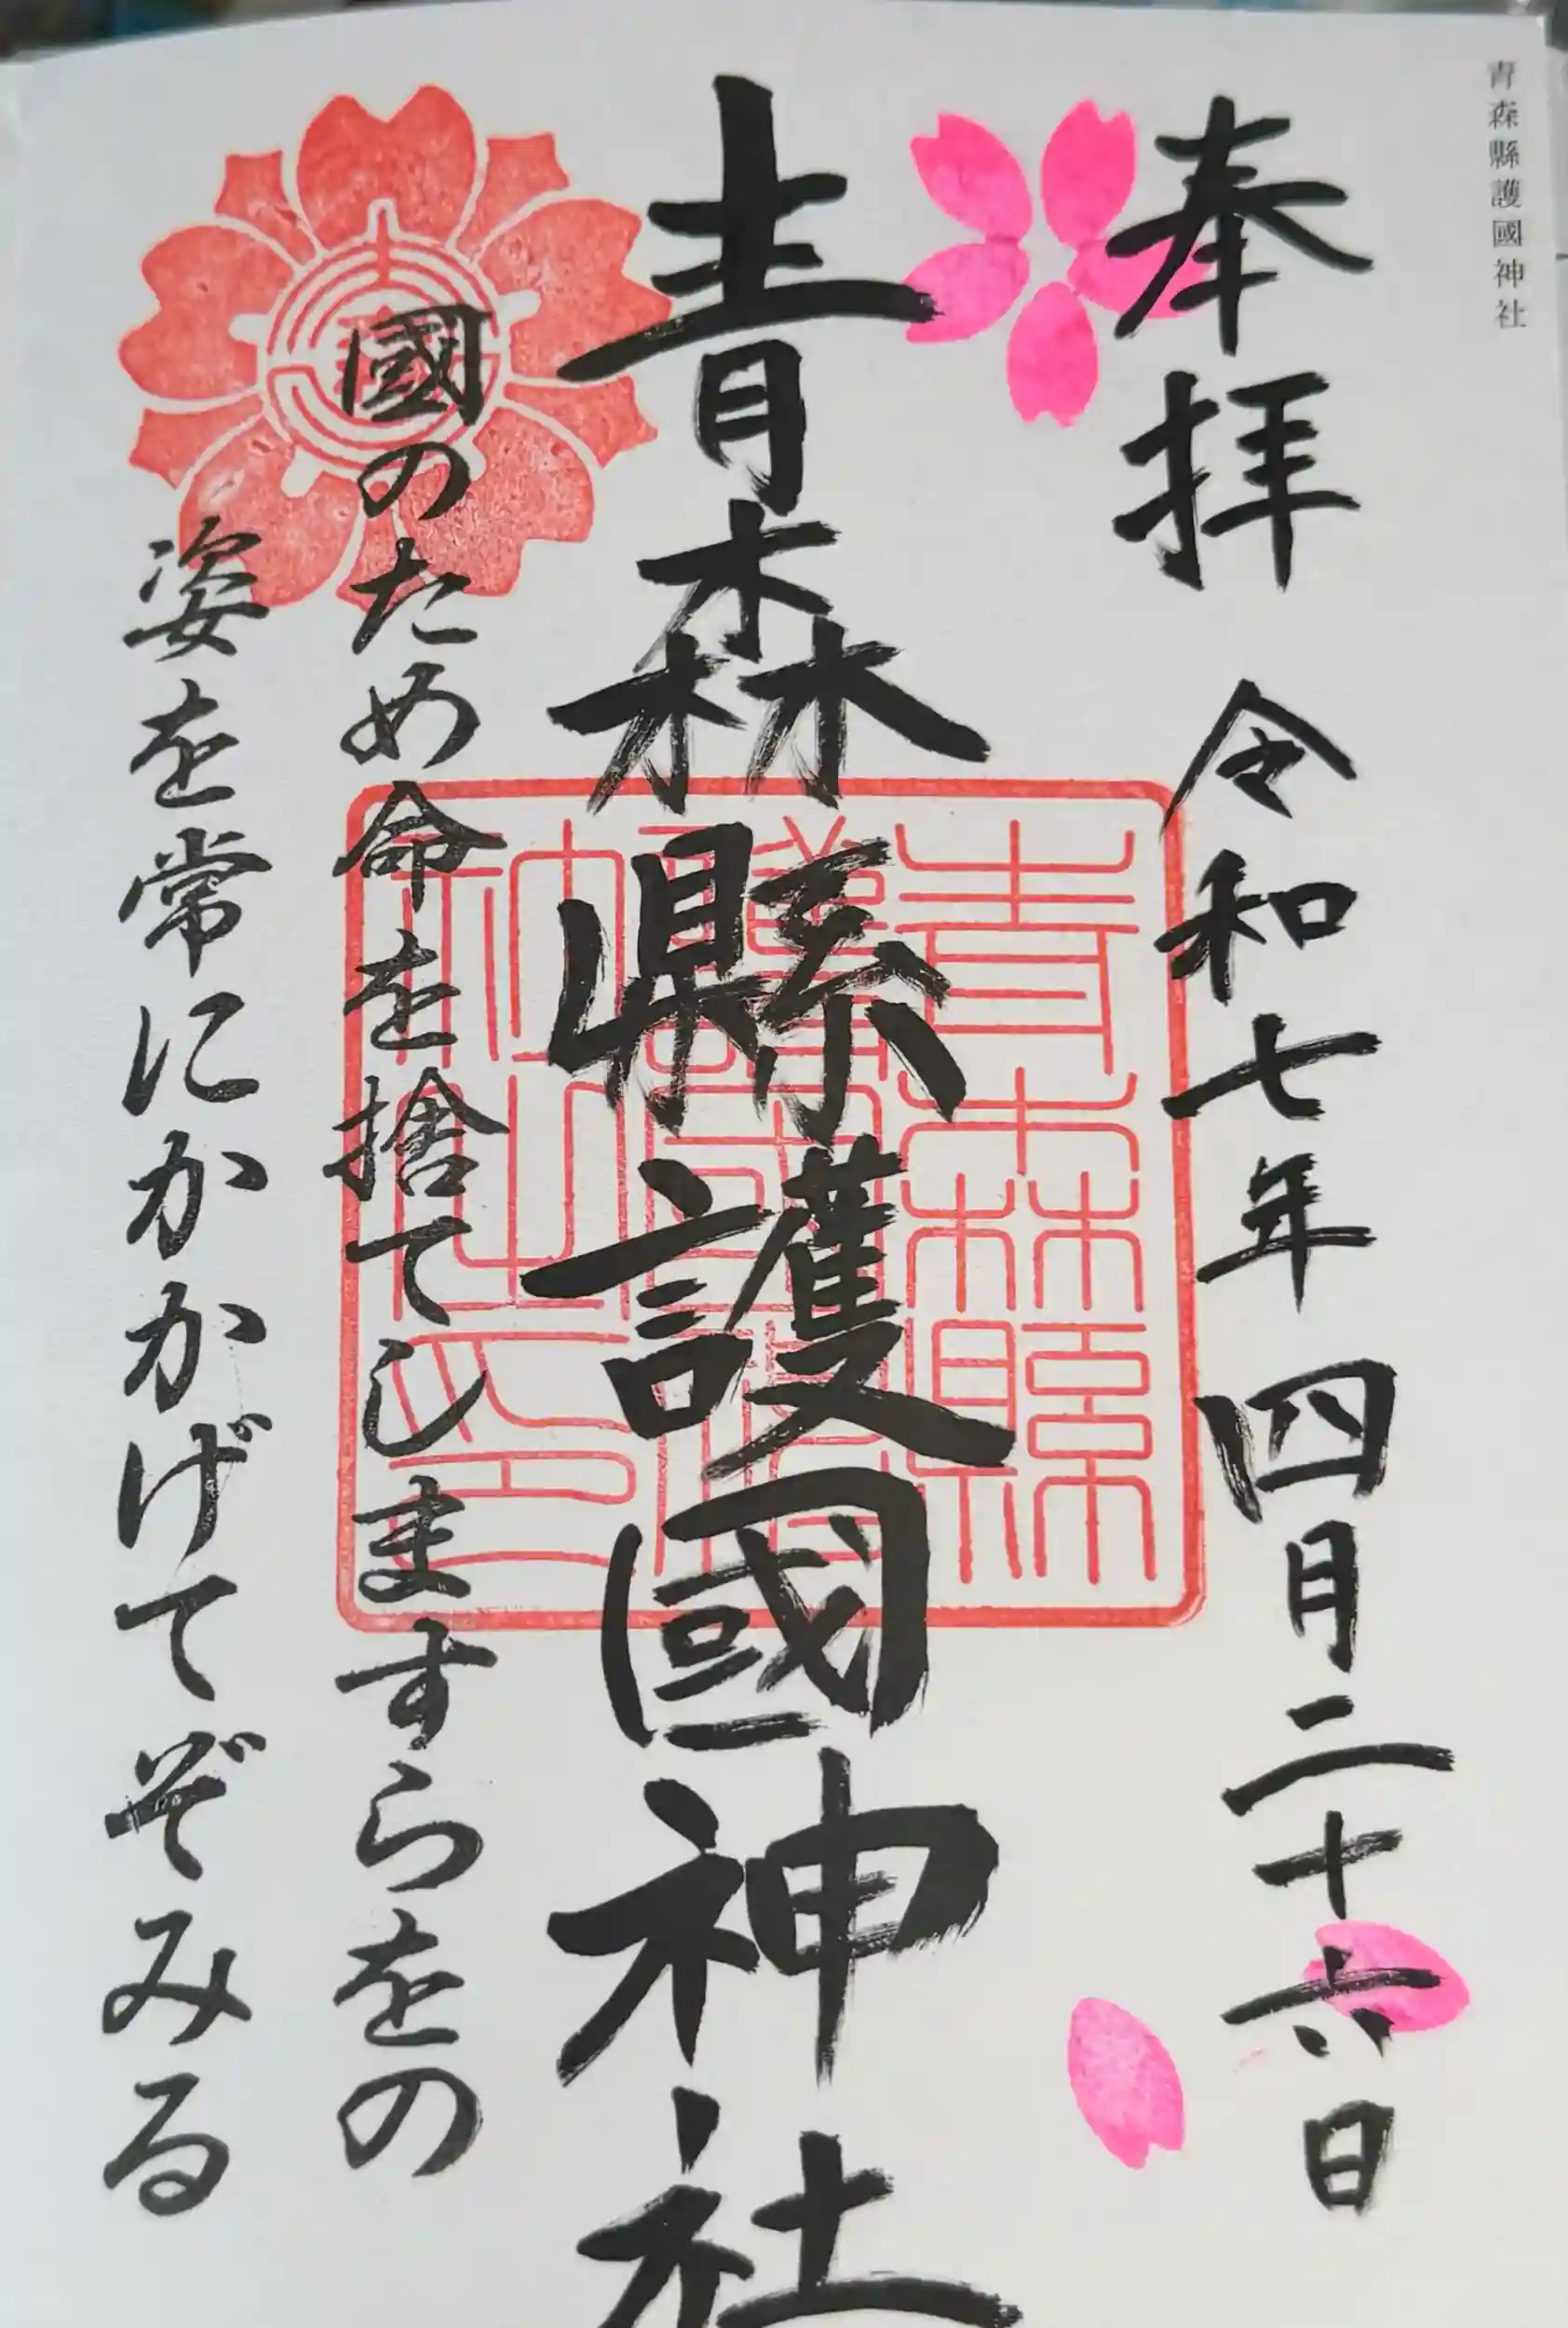 青森縣護國神社
奉拝 令和七年四月二十六日
青森縣護國神社
國のため命を捨てしますらをの
姿を常にかかげてぞみる